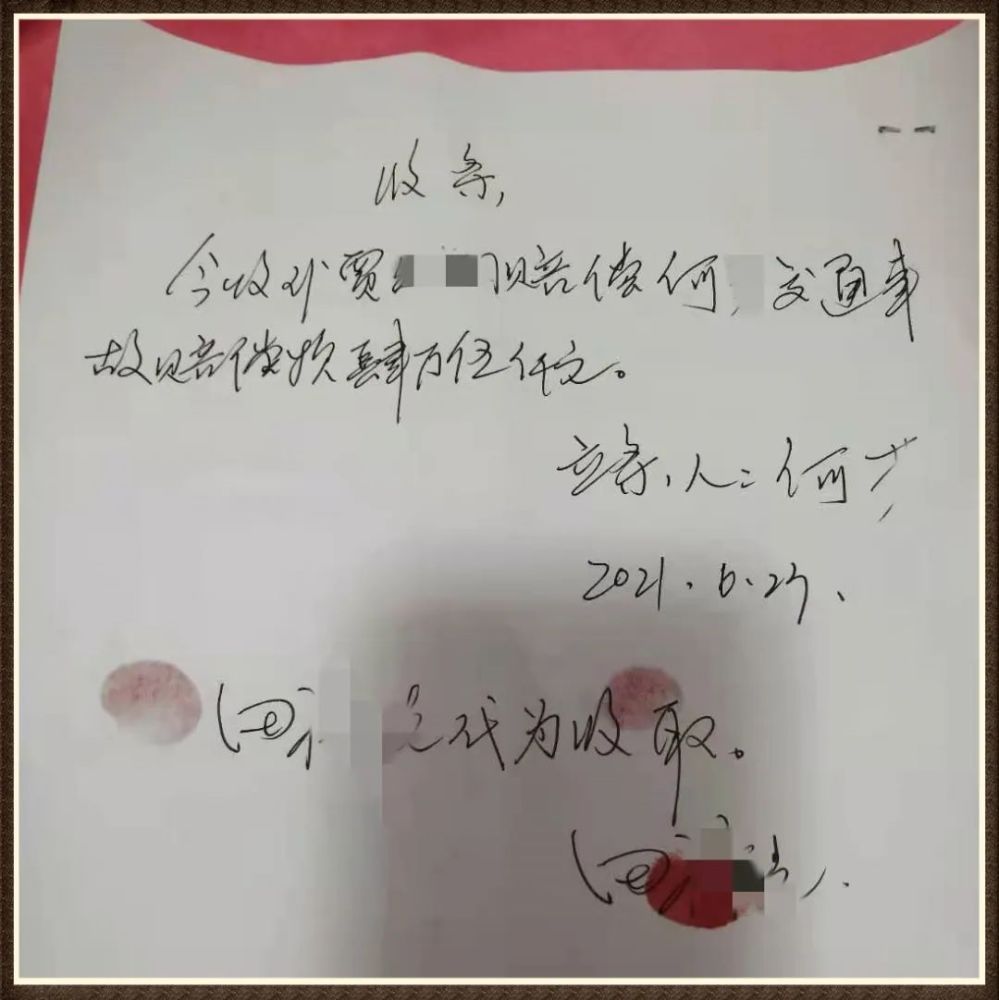 收条,
今收到贾 赔偿何 交通事
故赔偿款肆万伍仟元。
立条人:何
2021.6.27.
代为收取。